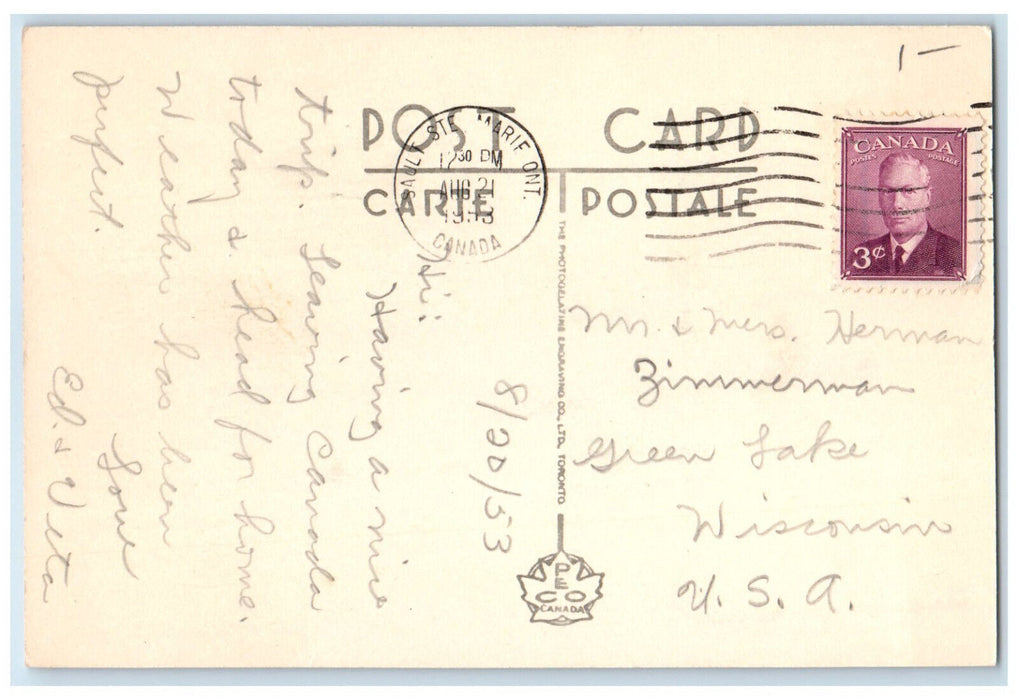 1—
POST CARD
CARTE POSTALE
SAULT STE. MARIE ONT.
12 30 PM
AUG 21
CANADA
CANADA
POSTES POSTAGE
3¢
8/20/53
Hi:
Having a nice
trip. Leaving Canada
today & head for home.
Weather has been
perfect.
Love
Ed. & Veta
THE PHOTOGELATINE ENGRAVING CO., LTD. TORONTO
PECO
CANADA
Mr. & Mrs. Herman
Zimmerman
Green Lake
Wisconsin
U. S. A.